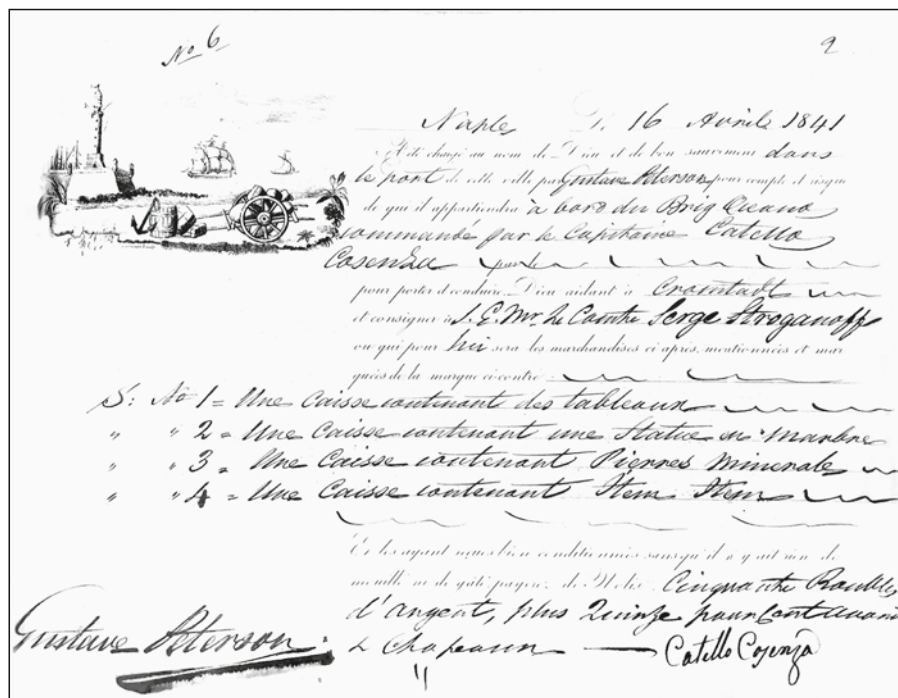 No 6
2
Naples 16 Avril 1841
A été chargé au nom de Dieu et de bon sauvement dans
le port de cette ville par Gustave Peterson pour compte et risque
de qui il appartiendra à bord du Brig
commandé par le Capitaine Catello
Cosenza
pour porter et conduire, Dieu aidant à Cronstadt
et consigner à S. E. Mr. Le Comte Serge Stroganoff
ou qui pour lui sera les marchandises ci après mentionnées et mar
quées de la marque ci-contre
S: No 1 = Une Caisse contenant des tableaux
" " 2 = Une Caisse contenant une Statue en Marbre
" " 3 = Une Caisse contenant Pierres Minerale
" " 4 = Une Caisse contenant Item Item
Et les ayant reçues bien conditionnées sans qu'il n'y ait rien de
mouillé ni de gâté payera de Nolis Cinquante Roubles
d'argent, plus Quinze pour Cent
& Chapeau
Catello Cosenza
Gustave Peterson